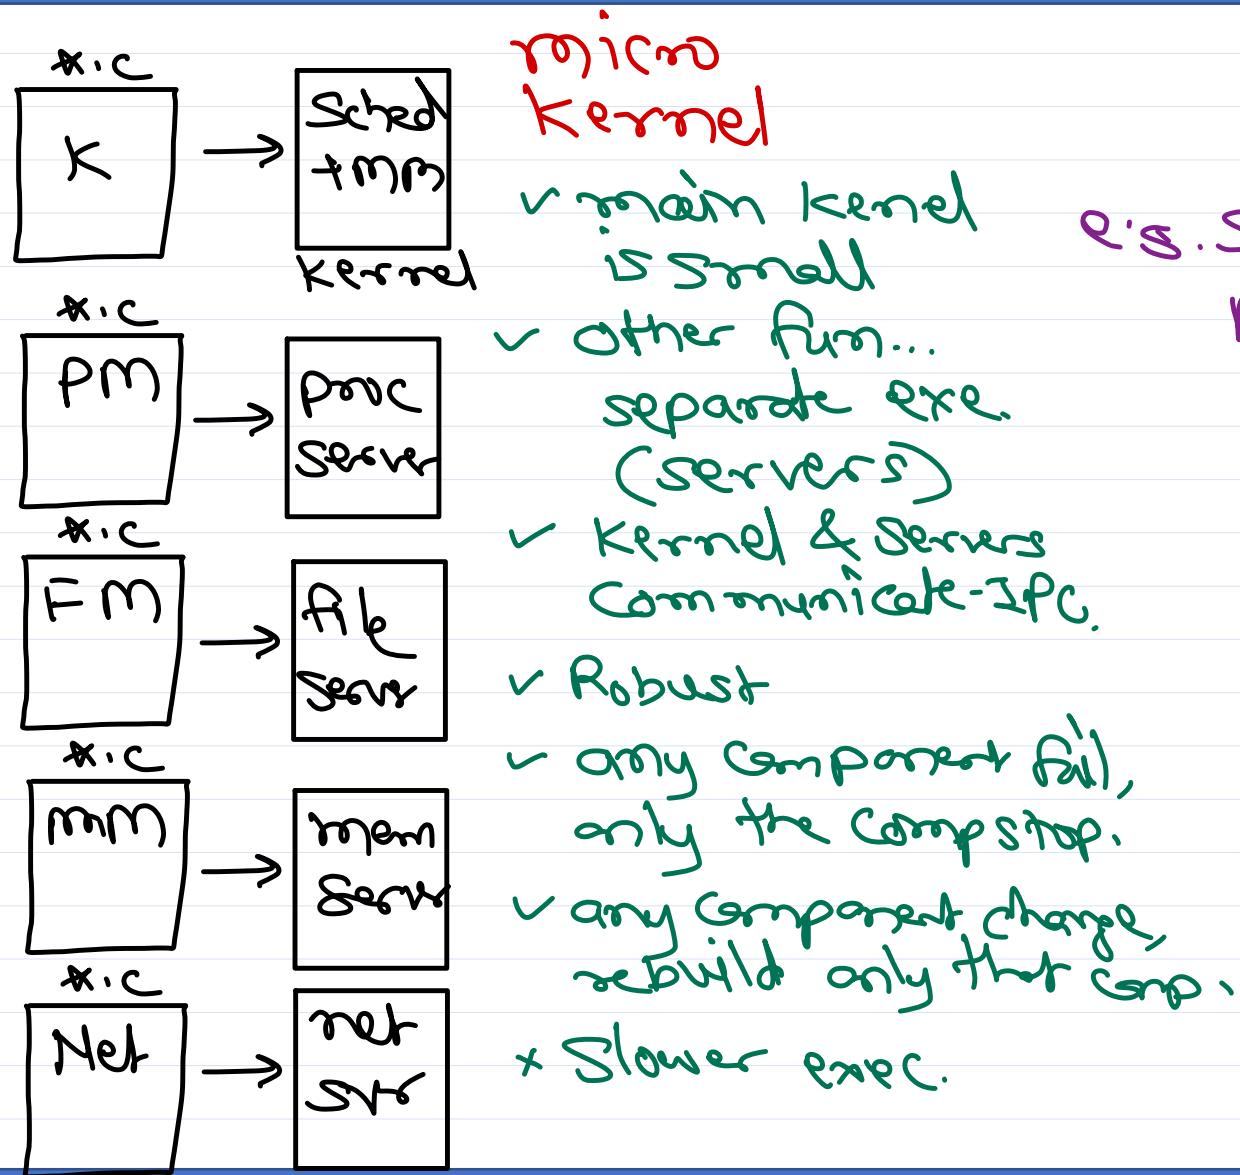 micro
kernel
*.c
K
Sched
+mm
kernel
*.c
PM
proc
server
*.c
FM
file
server
*.c
mm
mem
server
*.c
Net
net
svr
✓ main kernel
is small
✓ other fun...
separate exe.
(servers)
✓ Kernel & servers
communicate-IPC.
✓ Robust
✓ any component fail,
only the comp stop.
✓ any component change,
rebuild only that comp.
x Slower exec.
e.g. S